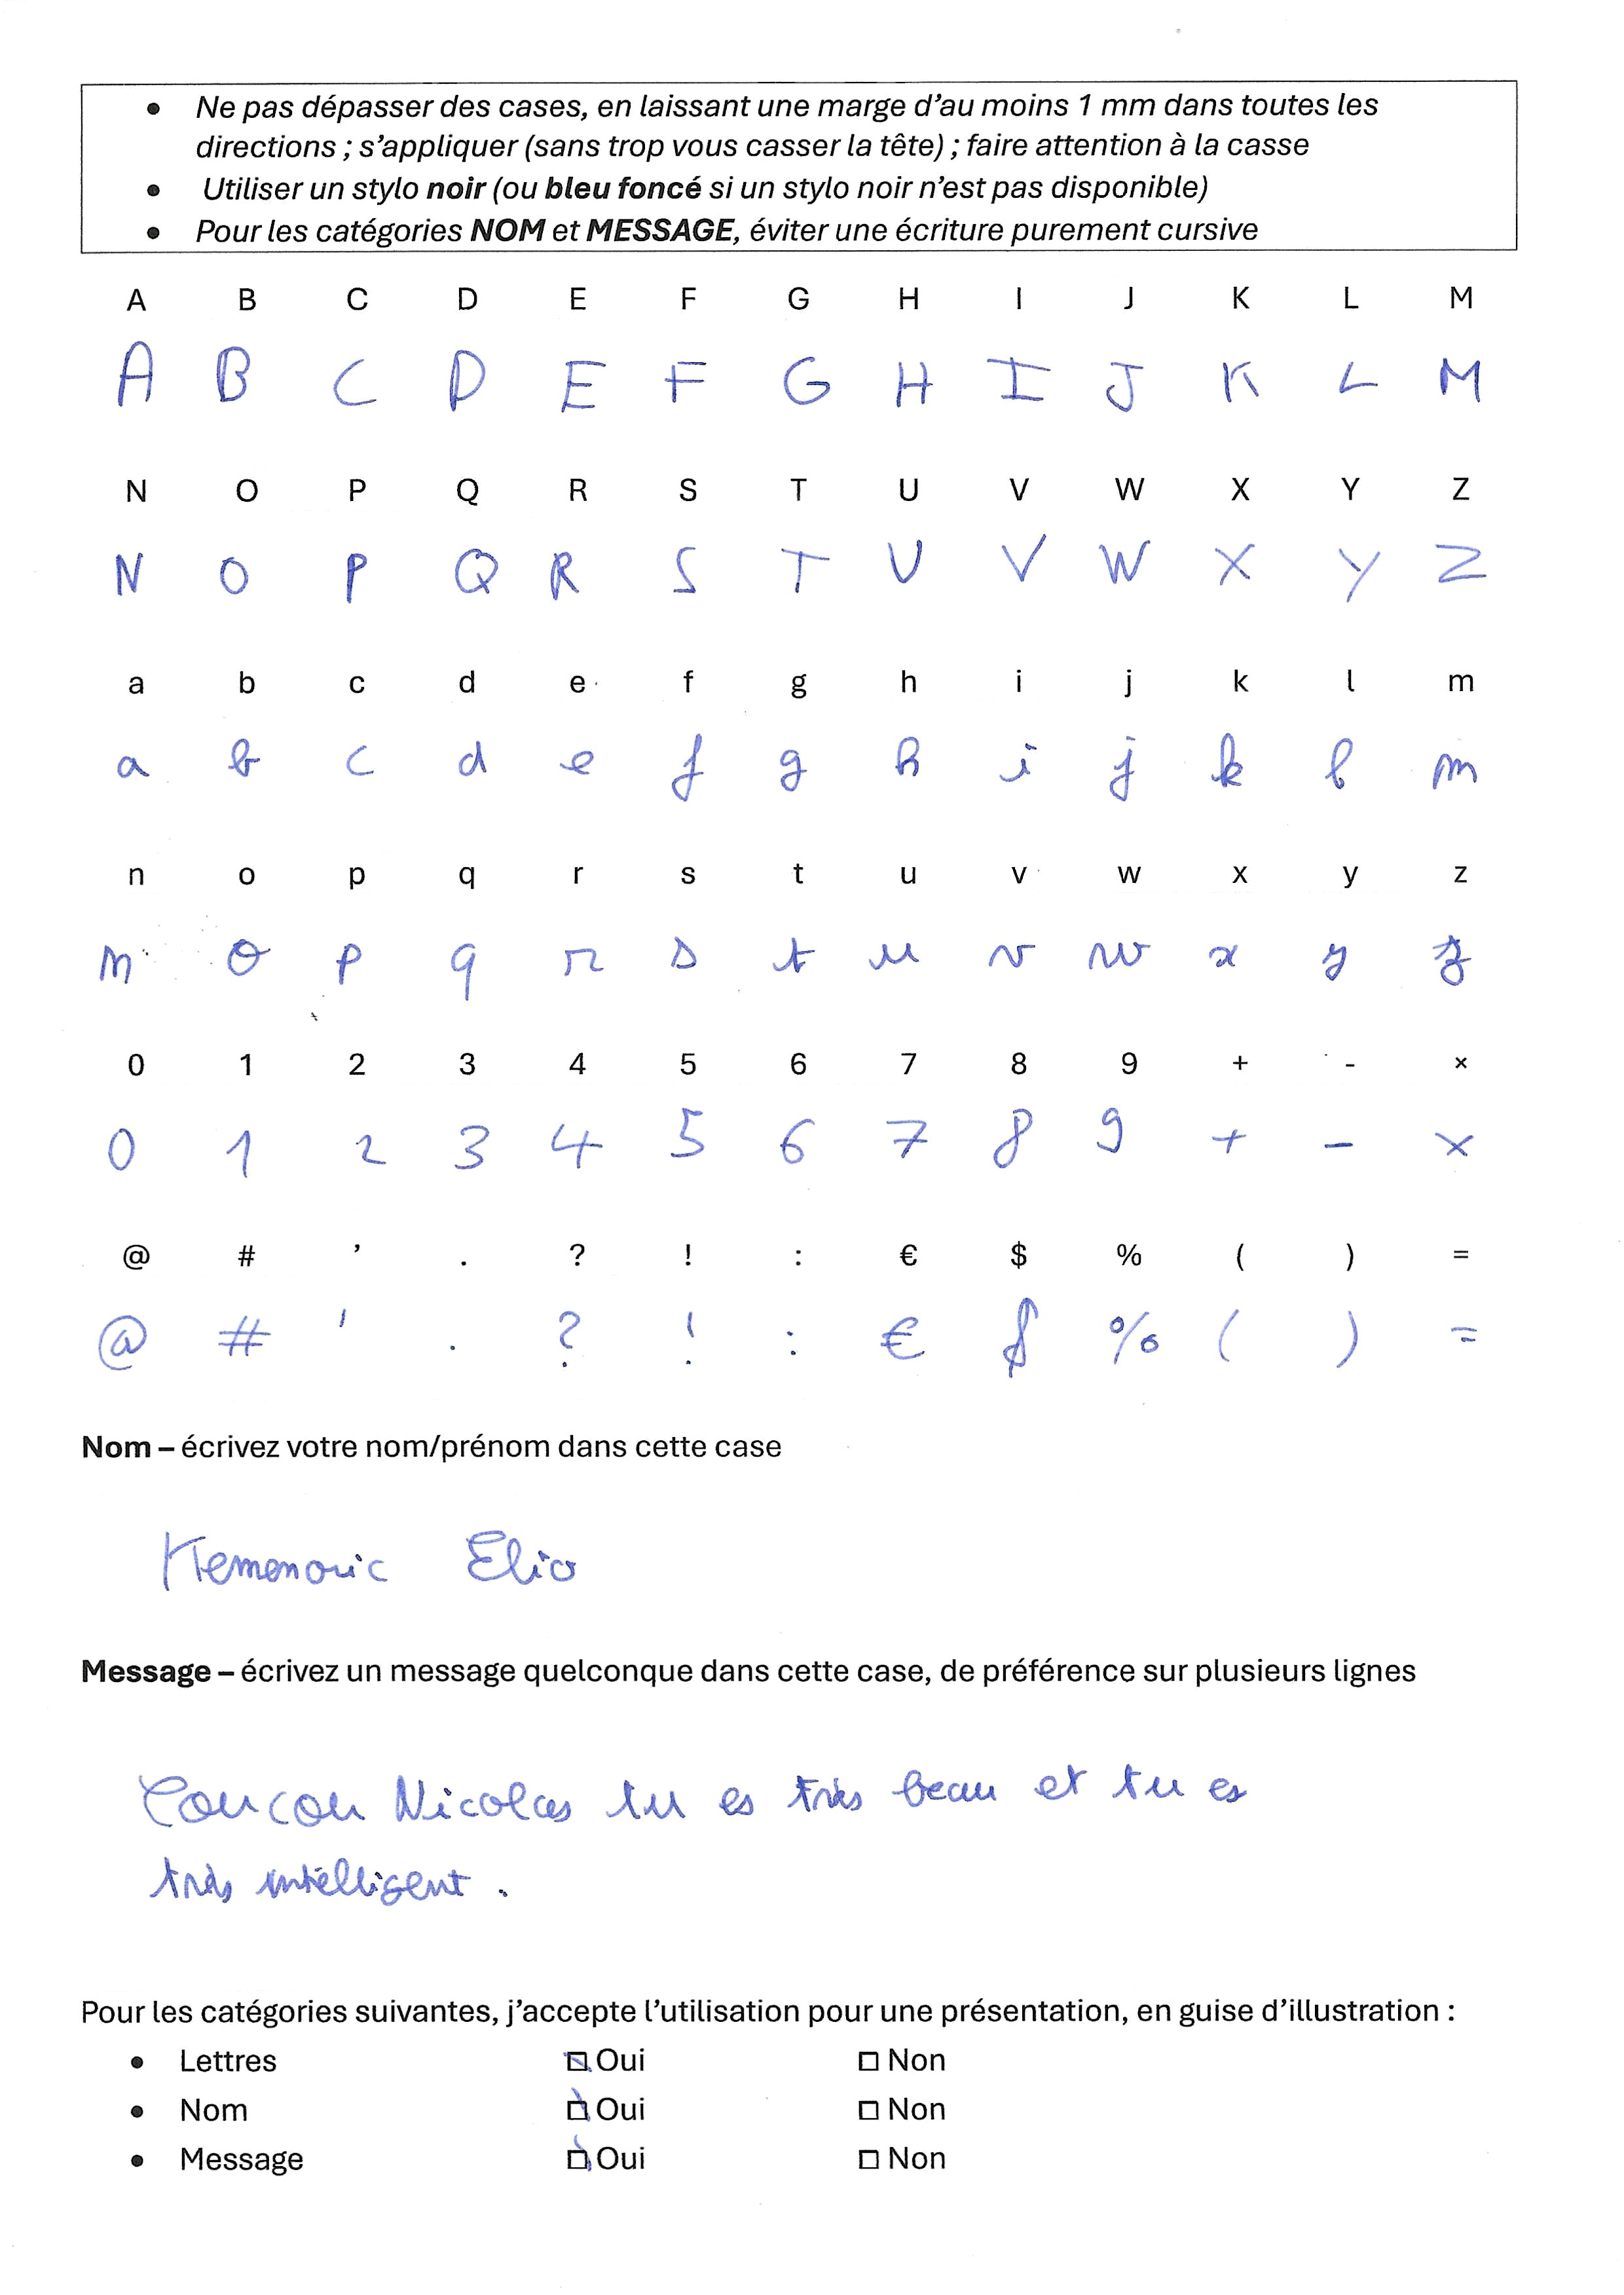 • Ne pas dépasser des cases, en laissant une marge d'au moins 1 mm dans toutes les
directions ; s'appliquer (sans trop vous casser la tête) ; faire attention à la casse
• Utiliser un stylo noir (ou bleu foncé si un stylo noir n'est pas disponible)
• Pour les catégories NOM et MESSAGE, éviter une écriture purement cursive
A B C D E F G H I J K L M
A B C D E F G H I J K L M
N O P Q R S T U V W X Y Z
N O P Q R S T U V W X Y Z
a b c d e f g h i j k l m
a b c d e f g h i j k l m
n o p q r s t u v w x y z
n o p q r s t u v w x y z
0 1 2 3 4 5 6 7 8 9 + - ×
0 1 2 3 4 5 6 7 8 9 + - ×
@ # ’ . ? ! : € $ % ( ) =
@ # ' . ? ! : € $ % ( ) =
Nom – écrivez votre nom/prénom dans cette case
Elio
Message – écrivez un message quelconque dans cette case, de préférence sur plusieurs lignes
Coucou Nicolas tu es très beau et tu es
très intelligent .
Pour les catégories suivantes, j'accepte l'utilisation pour une présentation, en guise d'illustration :
• Lettres ☑ Oui ☐ Non
• Nom ☑ Oui ☐ Non
• Message ☑ Oui ☐ Non